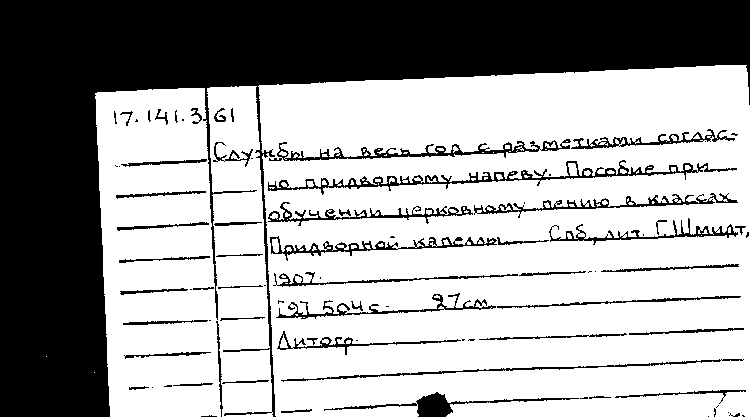 17.141.3.61
Службы на весь год с разметками соглас-
но придворному напеву. Пособие при
обучении церковному пению в классах
Придворной капеллы. Спб, лит. Г.Шмидт,
1907.
[2] 504 с. 27 см
Литогр.